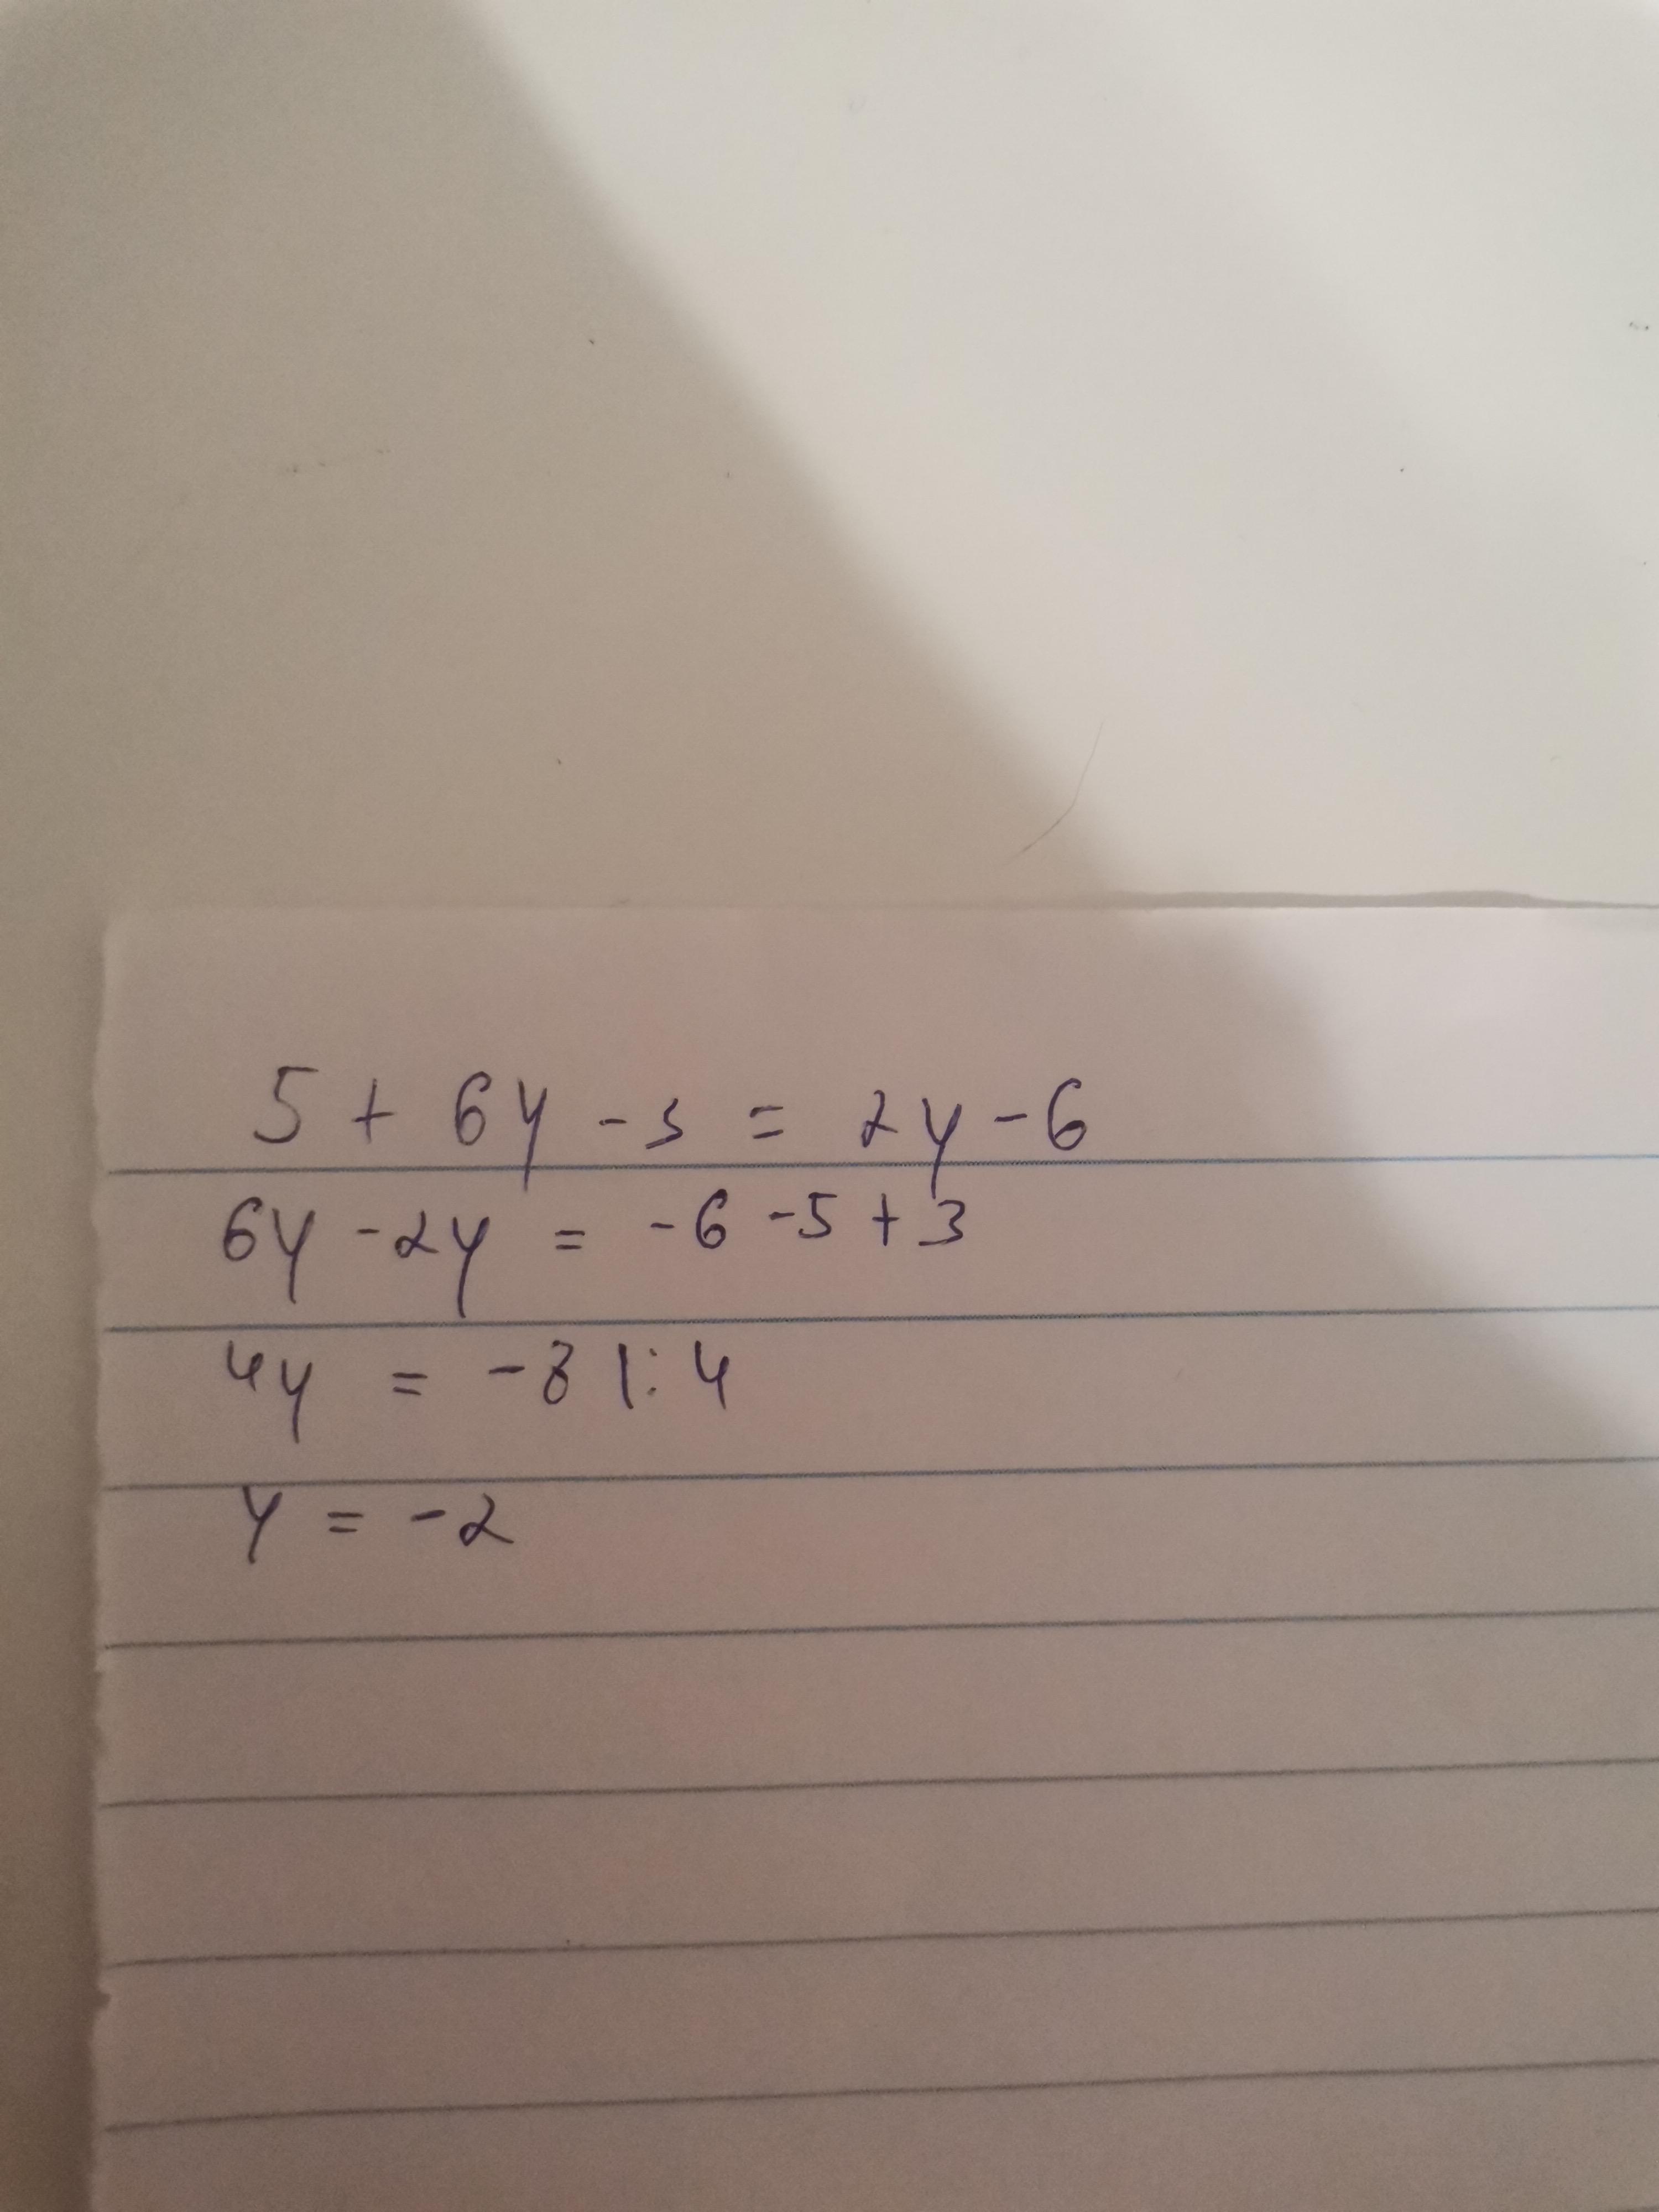 5 + 6y - 3 = 2y - 6
6y - 2y = -6 -5 + 3
4y = -8 |: 4
y = -2